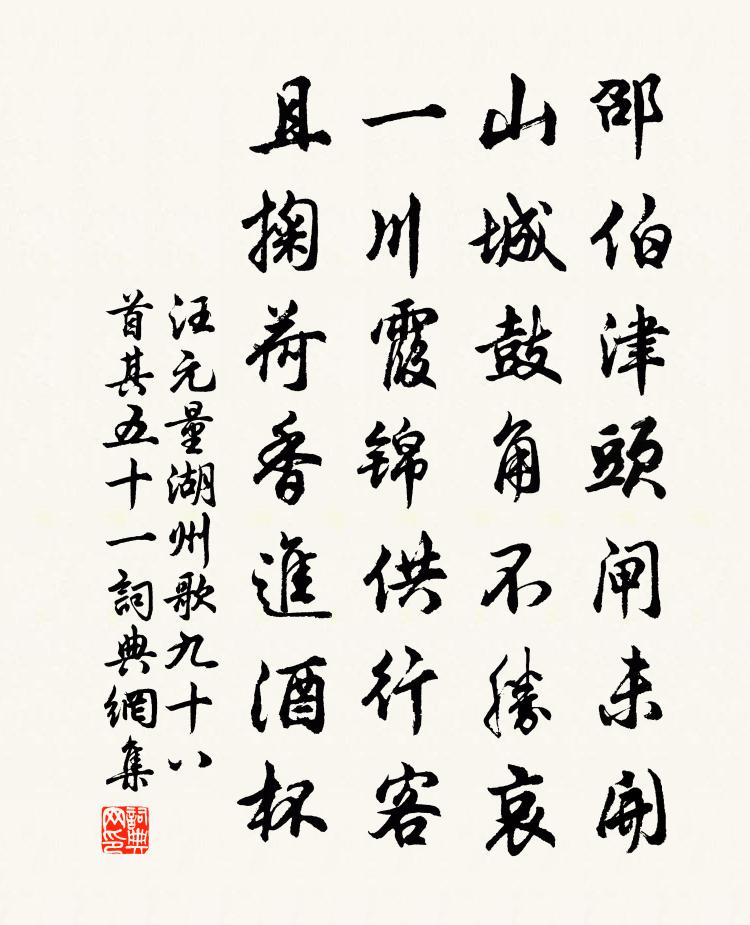 邵伯津頭閘未開
山城鼓角不勝哀
一川霞錦供行客
且掬荷香進酒杯
汪元量湖州歌九十八
首其五十一詞典網集
詞典網印